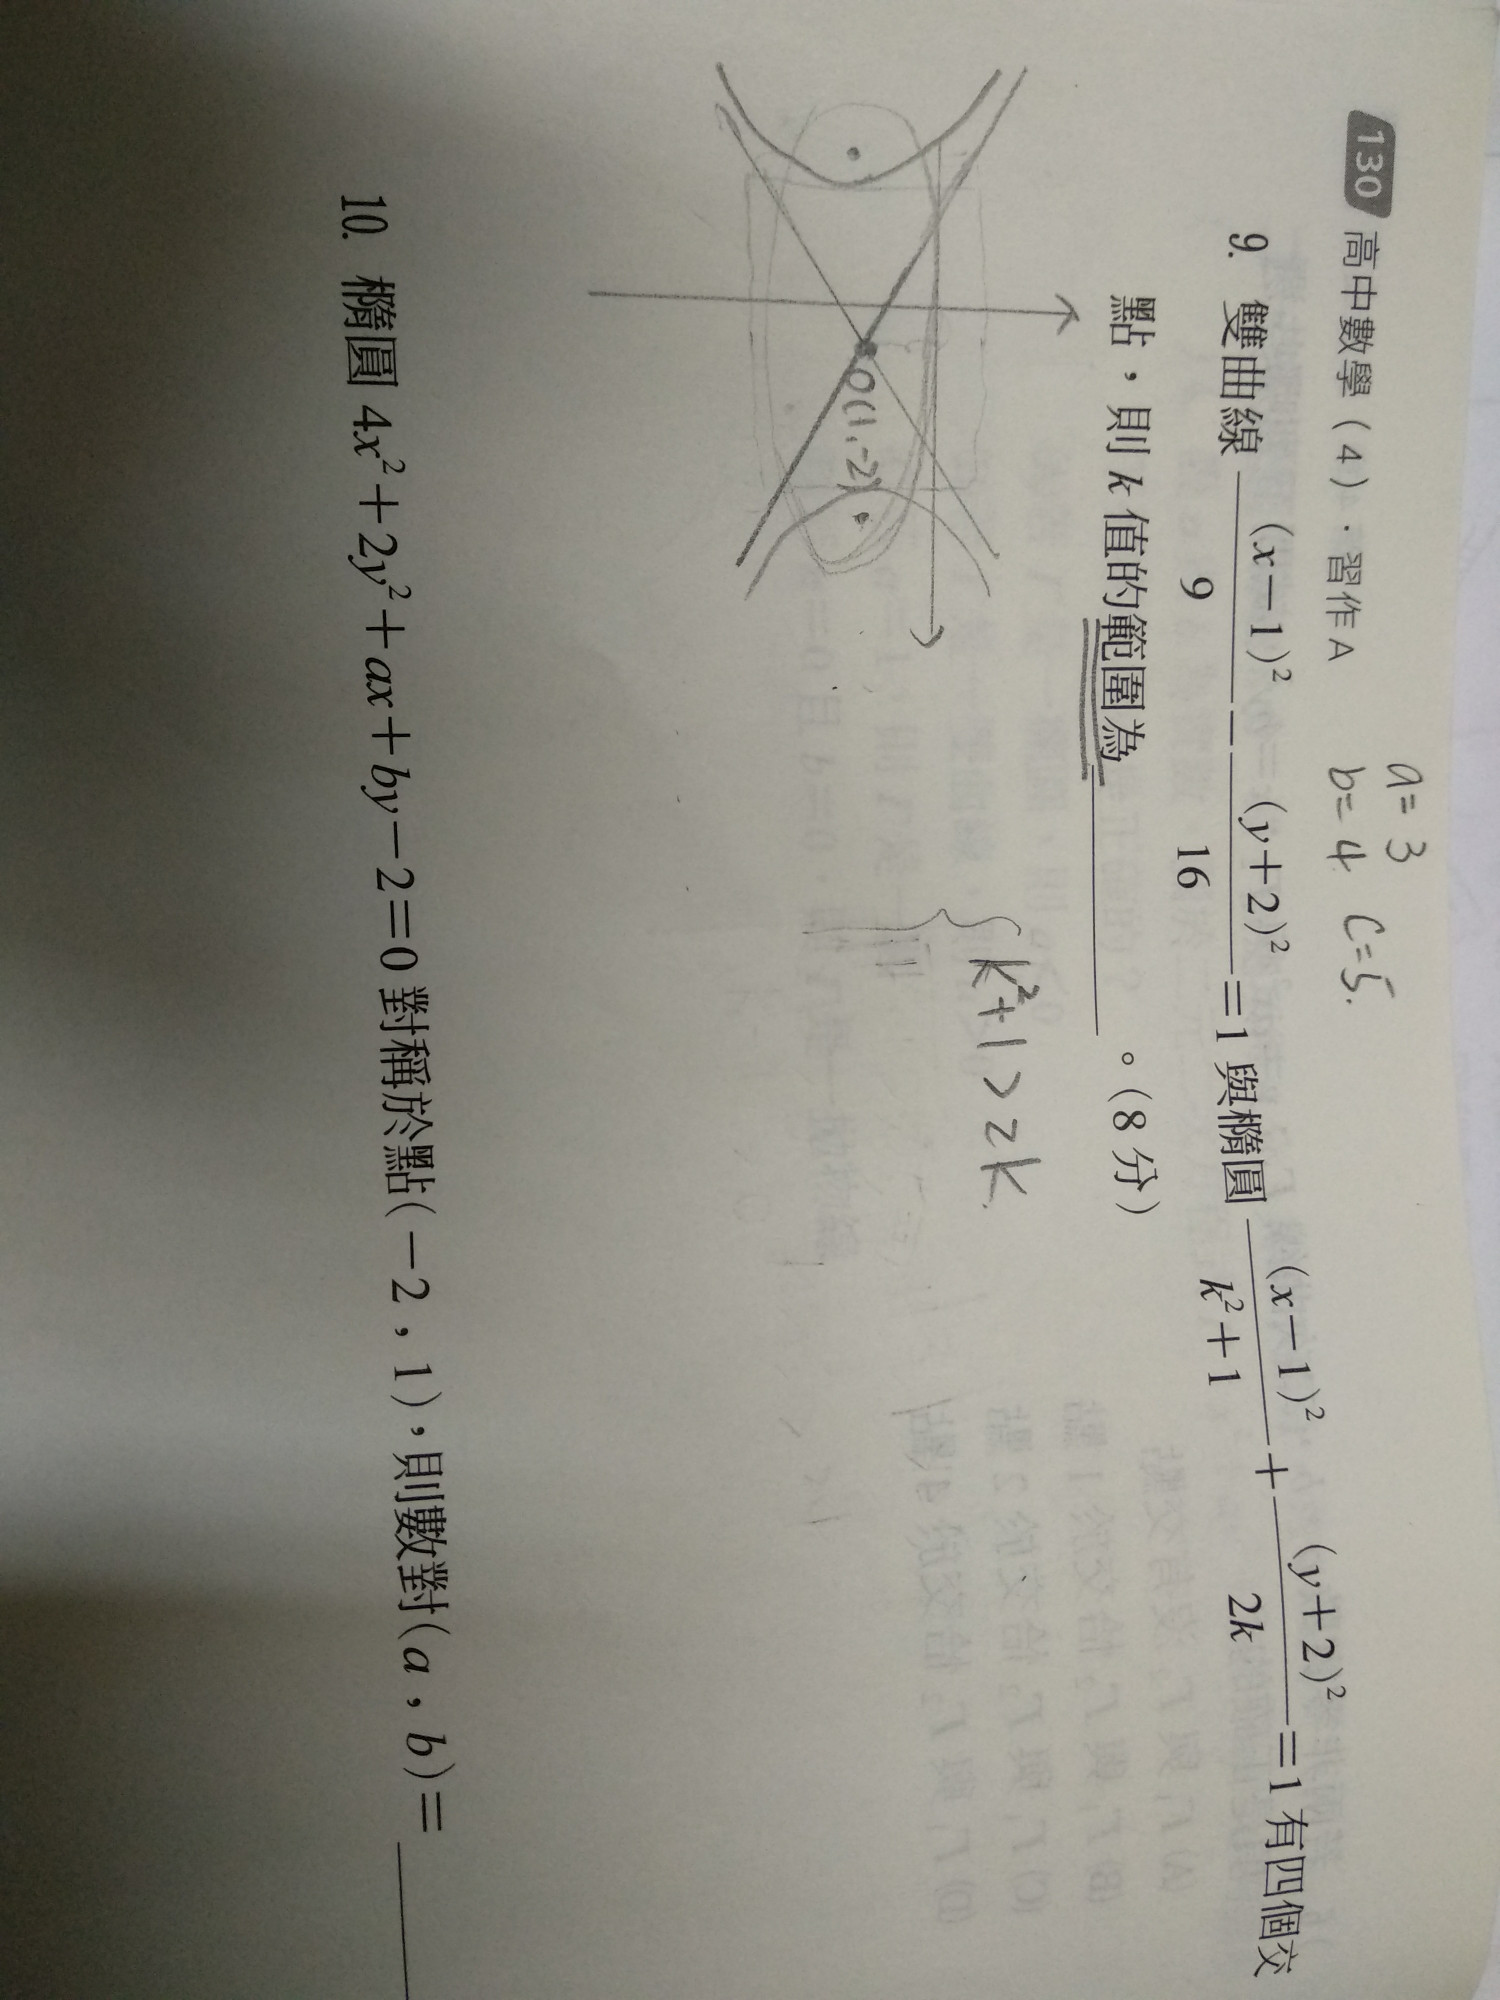 130 高中數學（4）．習作A
a=3
b=4 c=5.
9. 雙曲線 (x−1)²/9 − (y+2)²/16 =1 與橢圓 (x−1)²/k²+1 + (y+2)²/2k =1 有四個交
點，則 k 值的範圍為 ______ 。（8分）
{ k²+1>2k
O(1,-2)
10. 橢圓 4x²+2y²+ax+by−2=0 對稱於點(−2，1)，則數對(a，b)= ______